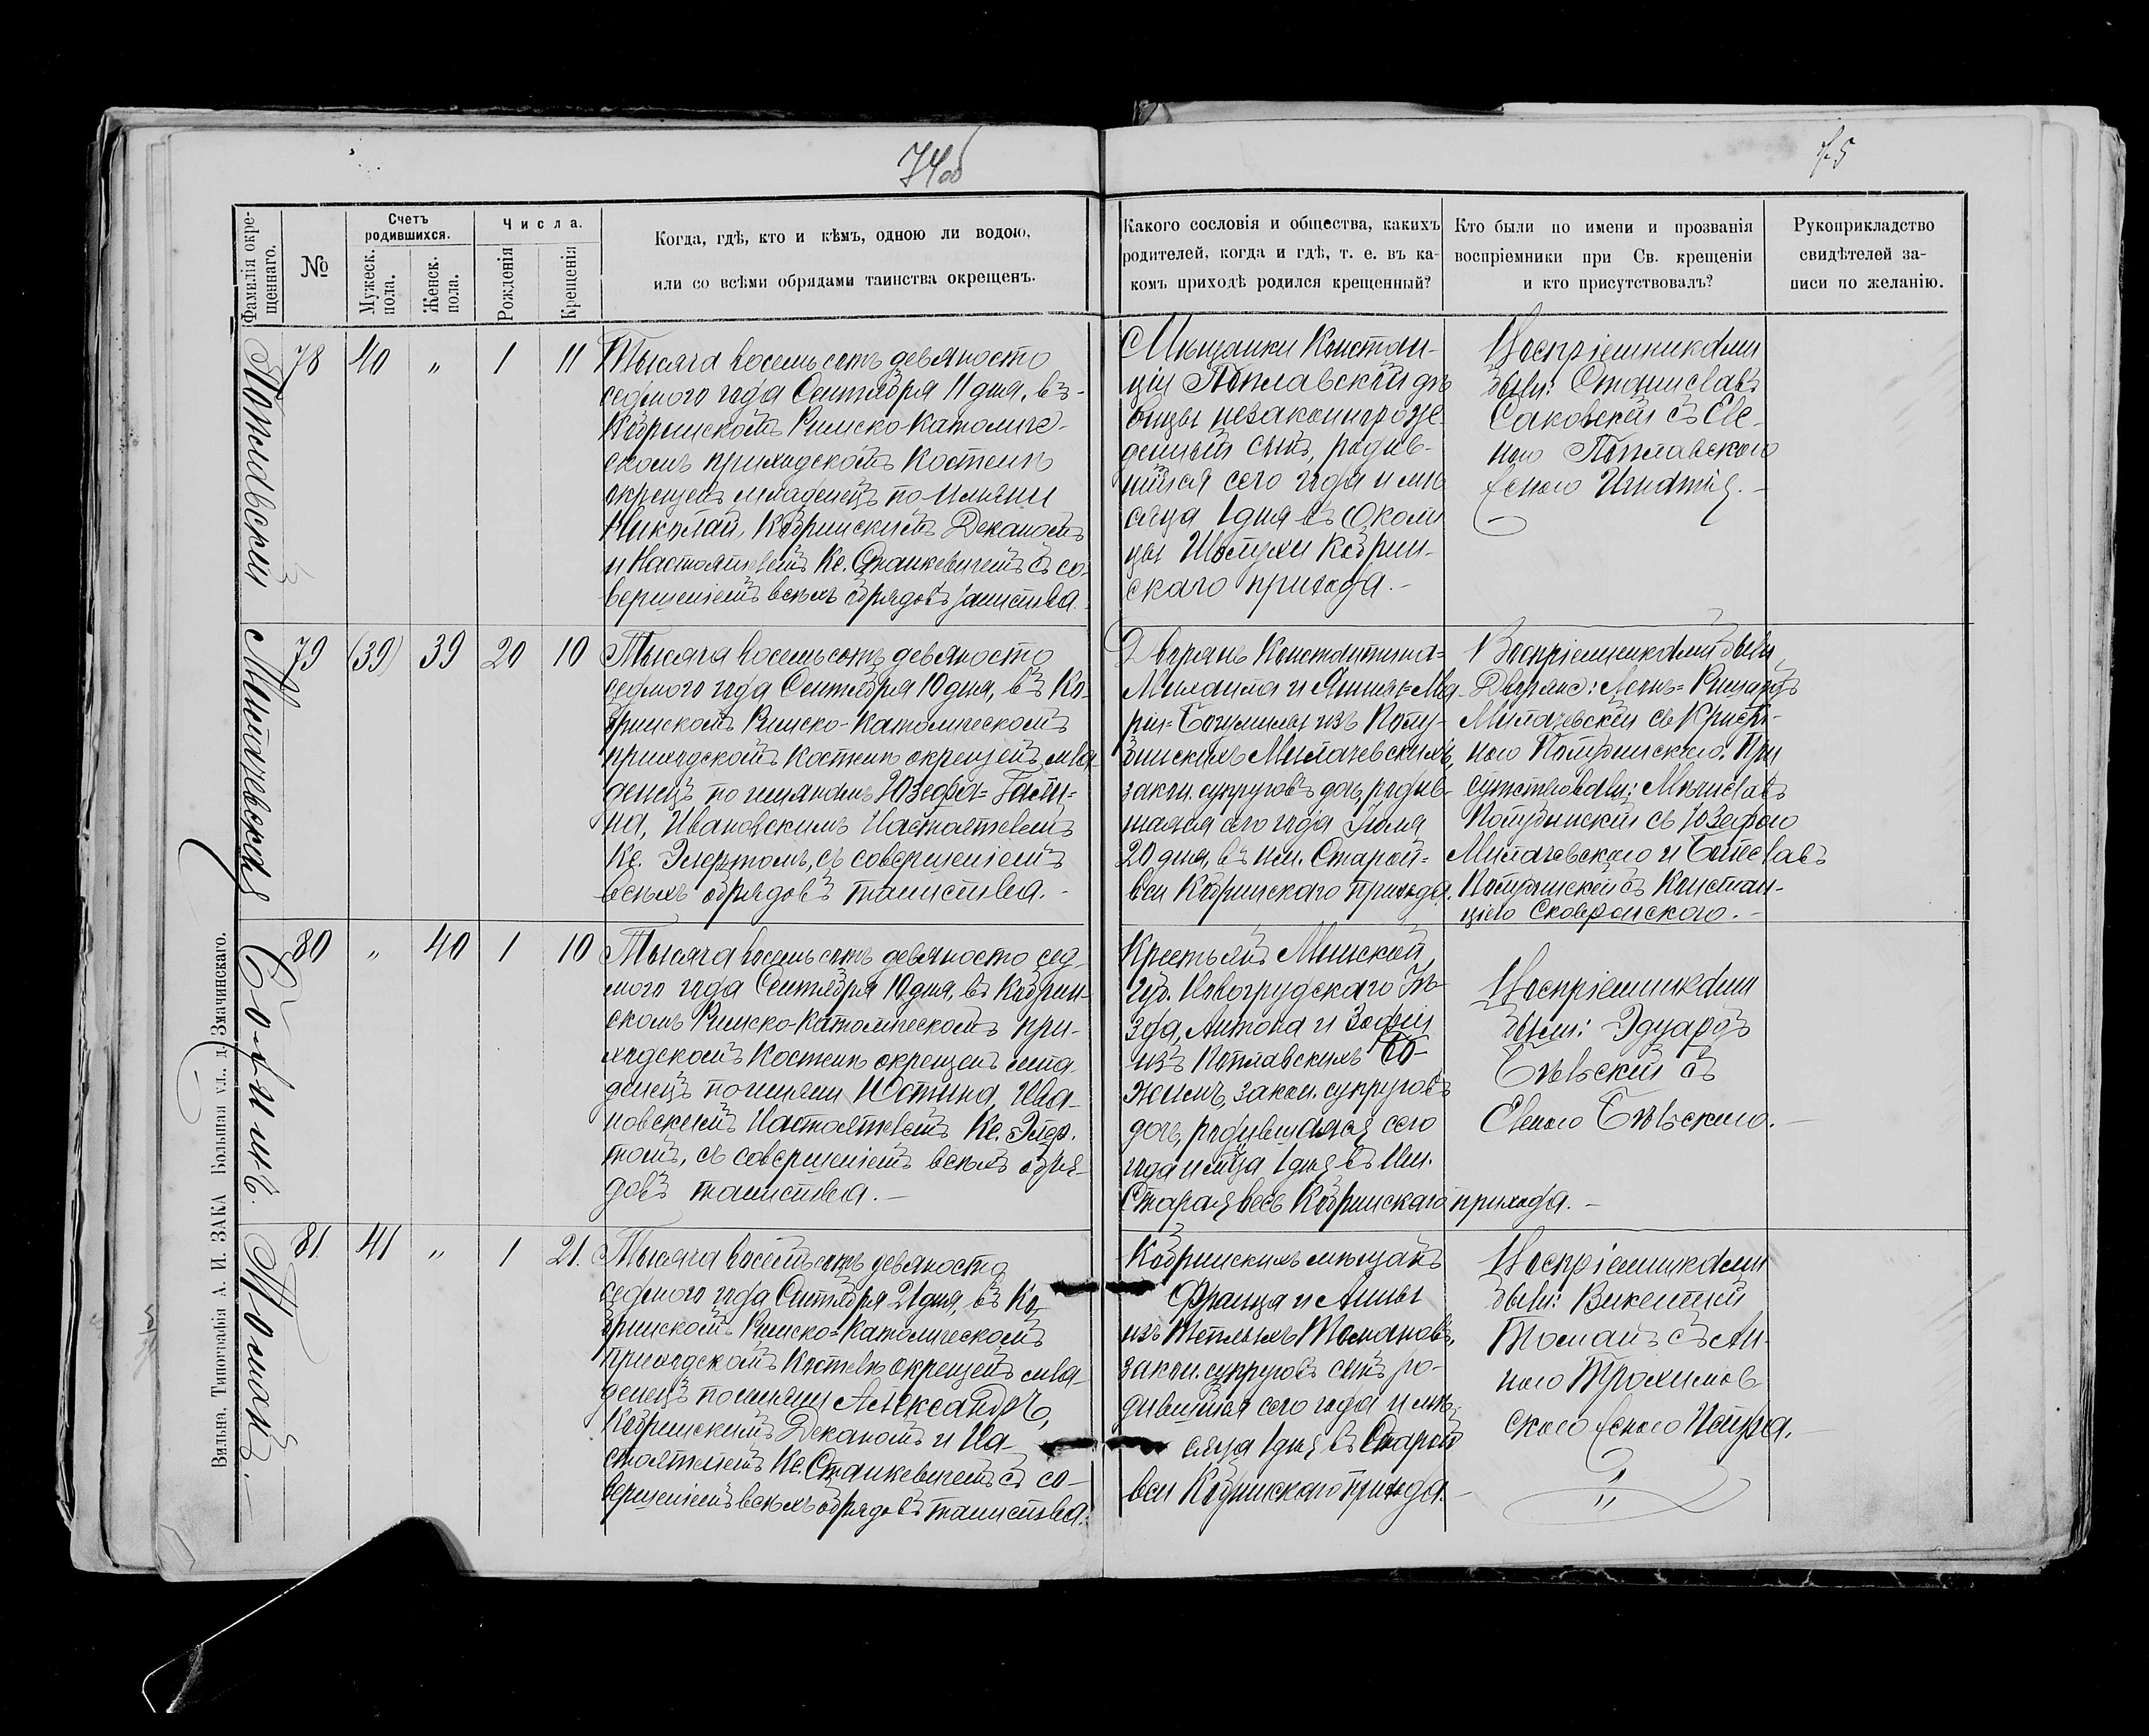 74об
75
Фамилія окре-
щеннаго.
№
Счетъ
родившихся.
Мужеск.
пола.
Женск.
пола.
Числа.
Рожденія
Крещенія
Когда, гдѣ, кто и кѣмъ, одною ли водою,
или со всѣми обрядами таинства окрещенъ.
Какого сословія и общества, какихъ
родителей, когда и гдѣ, т. е. въ ка-
комъ приходѣ родился крещенный?
Кто были по имени и прозванія
воспріемники при Св. крещеніи
и кто присутствовалъ?
Рукоприкладство
свидѣтелей за-
писи по желанію.
Поплавскій
78 40 „ 1 11
Тысяча восемьсотъ девяносто
седмого года Сентября 11 дня, въ
Кобринскомъ Римско-Католиче-
скомъ приходскомъ Костелѣ
окрещенъ младенецъ по имяни
Николай, Кобринскимъ Деканомъ
и Настоятелемъ Кс. Станкевичемъ съ со-
вершеніемъ всѣхъ обрядовъ таинства.
Мѣщанки Констан-
ціи Поплавской дѣ-
вицы незаконнорож-
денный сынъ, родив-
шійся сего года и мѣ-
сяца 1 дня въ Околи
цы Шолухи Кобрин-
скаго прихода.-
Воспріемниками
были: Станиславъ
Саковскій съ Еле-
ною Поплавскою
женою Игнатія.-
Милачевская
79 (39) 39 20 10
Тысяча восемьсотъ девяносто
седмого года Сентября 10 дня, въ Ко-
бринскомъ Римско-Католическомъ
приходскомъ Костелѣ окрещенъ мла-
денецъ по имянамъ Юзефа=Гали=
на, Ивановскимъ Настоятелемъ
Кс. Элертомъ, съ совершеніемъ
всѣхъ обрядовъ таинства.-
Дворянъ Константина=
Михаила и Янины=Ма-
ріи=Богумилы изъ
Милачевскихъ,
закон. супруговъ дочь, родив-
шаяся сего года Іюля
20 дня, въ им. Старой=
вси Кобринскаго прихода.
Воспріемниками были
Дворяне: Леонъ=Ришардъ
Милачевскій съ
При
сутствовали: Мѣчиславъ
съ Юзефою
Милачевскою и Болеславъ
съ Констан-
ціею Сковронскою.-
Божимъ.
80 „ 40 1 10
Тысяча восемьсотъ девяносто сед-
мого года Сентября 10 дня, въ Кобрин-
скомъ Римско-Католическомъ при-
ходскомъ Костелѣ окрещенъ мла-
денецъ по имяни Юстина, Ива-
новскимъ Настоятелемъ Кс. Элер-
томъ, съ совершеніемъ всѣхъ обря-
довъ таинства.-
Крестьянъ Минской
губ. Новогрудскаго Уѣ-
зда, Антона и Зофіи
изъ Поплавскихъ Бо-
жимъ, закон. супруговъ
дочь, родившаяся сего
года и м-ца 1 дня въ им.
Старая весь Кобринскаго прихода.-
Воспріемниками
были: Эдуардъ
Бѣльскій съ
Еленою Бѣльскою.-
Томанъ.-
81. 41 „ 1 21.
Тысяча восемьсотъ девяносто
седмого года Сентября 21 дня, въ Ко-
бринскомъ Римско=Католическомъ
Приходскомъ Костелѣ окрещенъ мла-
денецъ по имяни Александръ,
Кобринскимъ Деканомъ и На-
стоятелемъ Кс. Станкевичемъ съ со-
вершеніемъ всѣхъ обрядовъ таинства.
Кобринскихъ мѣщанъ
Франца и Анны
изъ Теплыхъ Томановъ,
закон. супруговъ сынъ ро-
дившійся сего года и мѣ-
сяца 1 дня въ Старой
вси Кобринскаго прихода.-
Воспріемниками
были: Викентій
Томанъ съ Ан-
ною Трохимов-
скою женою Петра.
Вильна. Типографія А. И. ЗАКА Большая ул., д. Змачинскаго.